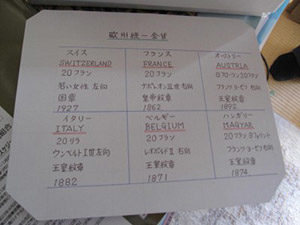 欧州統一金貨
スイス
SWITZERLAND
20フラン
若い女性 左向
国章
1927
フランス
FRANCE
20フラン
ナポレオンⅢ世 右向
皇帝紋章
1862
オーストリー
AUSTRIA
8フローリン20フラン
フランツヨーゼフ 右向
王室紋章
1892
イタリー
ITALY
20リラ
ウンベルトⅠ世 左向
王室紋章
1882
ベルギー
BELGIUM
20フラン
レオポルドⅡ 右向
王室紋章
1871
ハンガリー
MAGYAR
20フラン8フォリント
フランツヨーゼフ 右向
王室紋章
1874